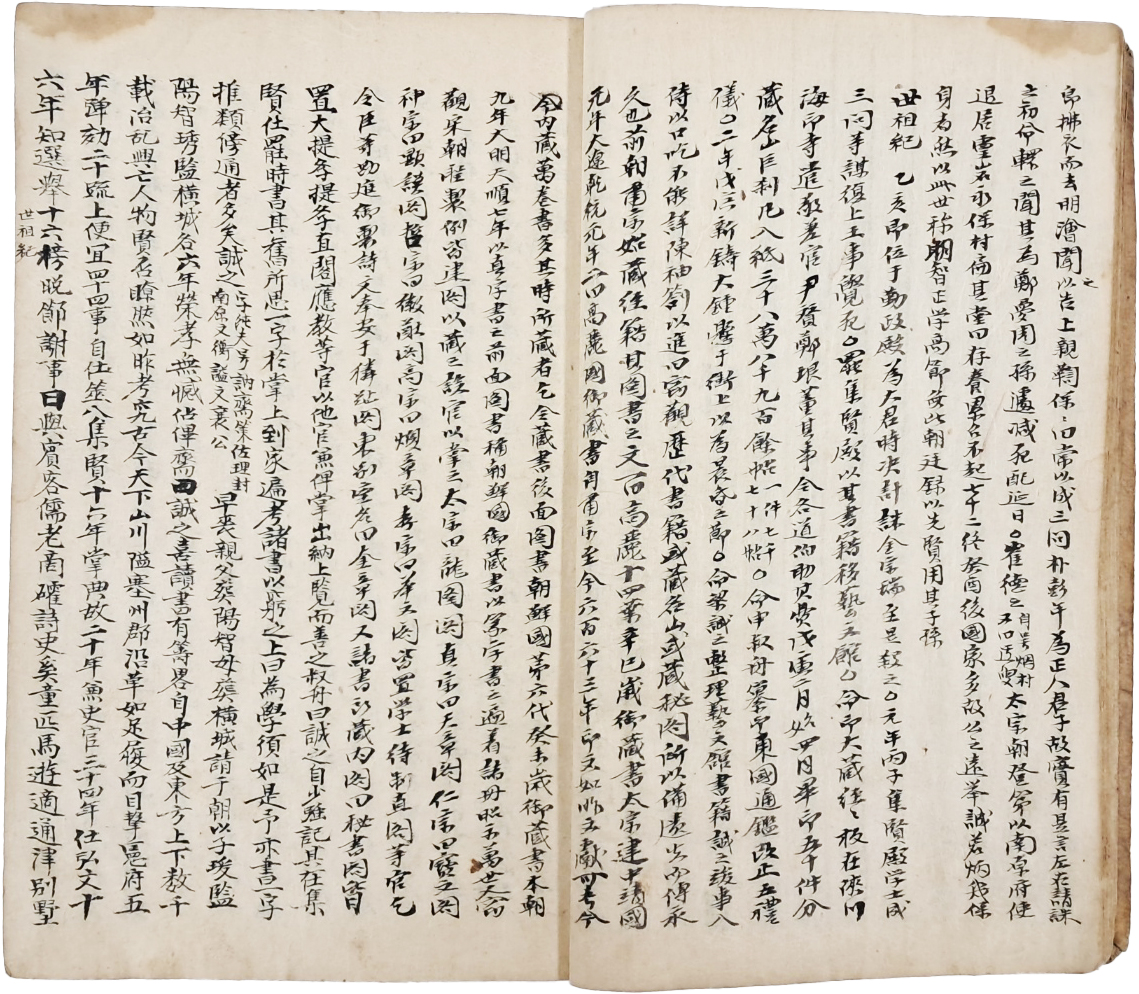 郎拂衣而去明澮聞以告上親鞫係口常以成三問朴彭年為正人君子故實有是言左右請誅
之
之初命轘之聞其為鄭夢周之孫遽减死配延日〇崔德之自号烟村太宗朝登第以南原府使
退居靈岩永保村扁其堂曰存養累召不起七十二終癸酉後國家多故公之遠舉誠若炳幾保
身者然以此世称明智正学高節及此朝廷録以先賢用其子孫
世祖紀 乙亥即位于勤政殿為大君時决計誅金宗瑞至是殺之〇元年丙子集賢殿学士成
三問等謀復上王事覺死〇罷集賢殿以其書籍移藝文館〇命印大藏經經板在陜川
海印寺遣敬差官尹贊鄭垠董其事令各道伯助其費戊寅二月始四月畢印五十件分
藏名山巨刹凡入紙三十八萬八千九百餘帖一件七千七十八帖〇命申叔舟纂東國通鑑改正五禮
儀〇二年戊寅新鑄大鍾懸于街上以為晨昏之節〇命梁誠之整理藝文館書籍誠之竣事入
侍以口吃不能詳陳袖箚以進曰窃觀歷代書籍或藏名山或藏秘閣所以備遺失而傳永
久也前朝肅宗始藏經籍其圖書之文一曰高麗十四葉辛巳歲御藏書大宋建中靖國
元年大遼乾統元年一曰高麗國御藏書自肅宗至今六百六十三年印文如昨文献可考今
今内藏萬卷書多其時所藏者乞令藏書後面圖書朝鮮國第六代癸未歲御藏書本朝
九年大明天順七年以真字書之前面圖書稱朝鮮國御藏書以篆字書之遍着諸册昭示萬世又窃
觀宋朝聖製例皆建閣以藏之設官以掌之太宗曰龍圖閣真宗曰天章閣仁宗曰寶文閣
神宗曰顯謨閣哲宗曰徽猷閣高宗曰煥章閣孝宗曰華文閣皆置学士待制直閣等官乞
令臣等勘進御製詩文奉安于獜趾閣東別室名曰奎章閣又諸書所藏内閣曰秘書閣皆
置大提学提学直閣應教等官以他官兼俾掌出納上覧而善之叔舟曰誠之自少強記其在集
賢仕罷時書其舊所思一字於掌上到家遍考諸書以窮之上曰為學須如是予亦書一字
推類修通者多矣誠之字純夫号訥齋策佐理封南原文衡謚文襄公早丧親父葬陽智母葬横城請于朝以子瑗監
陽智琇監横城各六年榮孝無憾佔俾齋曰誠之喜讀書有等畧自中國及東方上下数千
載治乱興亡人物賢否瞭然如昨考究古今天下山川隘塞州郡沿革如足履而目撃邑府五
年彈劾二十疏上便宜四十四事自仕筮八集賢十六年掌典故二十年兼史官三十四年仕弘文十
六年知選舉十六榜晩節謝事日與賓客儒老商確詩史奚童匹馬遊適通津別墅
世祖紀